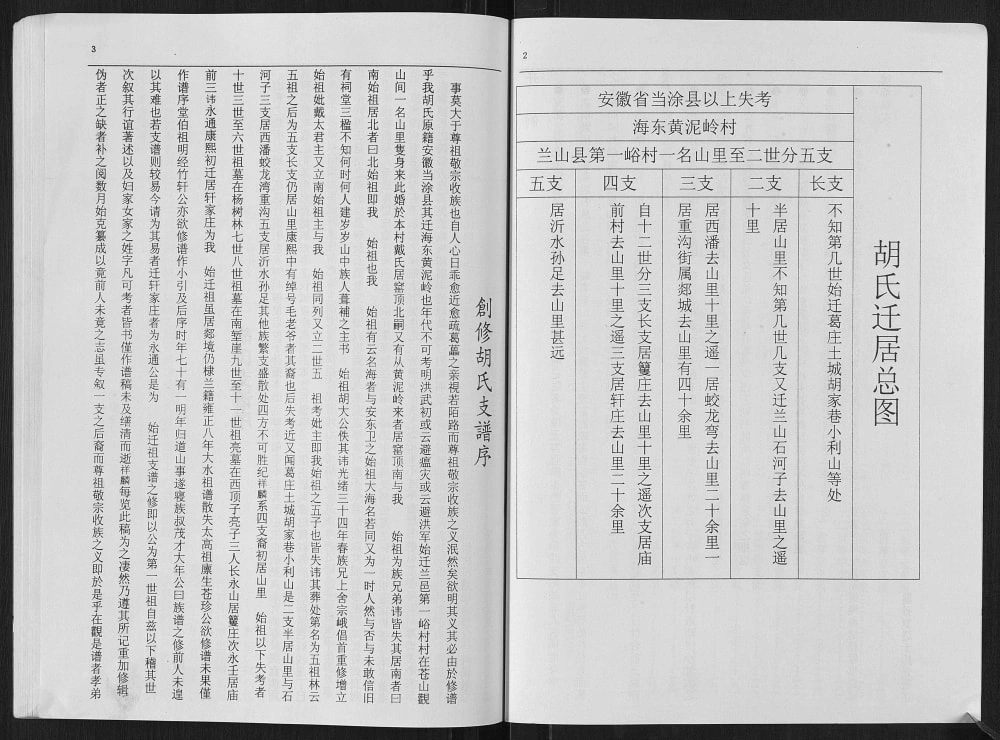 2
胡氏迁居总图
安徽省当涂县以上失考
海东黄泥岭村
兰山县第一峪村一名山里至二世分五支
长支
不知第几世始迁葛庄土城胡家巷小利山等处
二支
半居山里不知第几世几支又迁兰山石河子去山里之遥
十里
三支
居西潘去山里十里之遥一居蛟龙弯去山里二十余里一
居重沟街属郯城去山里有四十余里
四支
自十二世分三支长支居籰庄去山里十里之遥次支居庙
前村去山里十里之遥三支居轩庄去山里二十余里
五支
居沂水孙足去山里甚远
3
創修胡氏支譜序
事莫大于尊祖敬宗收族也自人心日乖愈近愈疏葛藟之亲视若陌路而尊祖敬宗收族之义泯然矣欲明其义其必由於修谱
乎我胡氏原籍安徽当涂县其迁海东黄泥岭也年代不可考明洪武初或云避瘟灾或云避洪军始迁兰邑第一峪村村在苍山觀
山间一名山里隻身来此婚於本村戴氏居窑顶北嗣又有从黄泥岭来者居窑顶南与我 始祖为族兄弟讳皆失其居南者曰
南始祖居北者曰北始祖即我 始祖也我 始祖有云名海者与安东卫之始祖大海名若同又为一时人然与否与未敢信旧
有祠堂三楹不知何时何人建岁岁山中族人葺補之主书 始祖胡大公佚其讳光绪三十四年春族兄上舍宗峨倡首重修增立
始祖妣戴太君主又立南始祖主与我 始祖同列又立二世五 祖考妣主即我始祖之五子也皆失讳其葬处第名为五祖林云
五祖之后为五支长支仍居山里康熙中有绰号毛老爷者其裔也后失考近又闻葛庄土城胡家巷小利山是二支半居山里与石
河子三支居西潘蛟龙湾重沟五支居沂水孙足其他族繁支盛散处四方不可胜纪祥麟系四支裔初居山里 始祖以下失考者
十世三世至六世祖墓在杨树林七世八世祖墓在南堑崖九世至十一世祖亮墓在西顶子亮子三人长永山居籰庄次永壬居庙
前三讳永通康熙初迁居轩家庄为我 始迁祖虽居郯境仍棣兰籍雍正八年大水祖谱散失太高祖廪生苍珍公欲修谱未果僅
作谱序堂伯祖明经竹轩公亦欲修谱作小引及后序时年七十有一明年归道山事遂寝族叔茂才大年公曰族谱之修前人未遑
以其难也若支谱则较易今请为其易者迁轩家庄者为永通公是为 始迁祖支谱之修即以公为第一世祖自兹以下稽其世
次叙其行谊著述以及妇家女家之姓字凡可考者皆书僅作谱稿未及缮清而逝祥麟每览此稿为之凄然乃遵其所记重加修辑
伪者正之缺者补之阅数月始克纂成以竟前人未竟之志虽专叙一支之后裔而尊祖敬宗收族之义即於是乎在觀是谱者孝弟